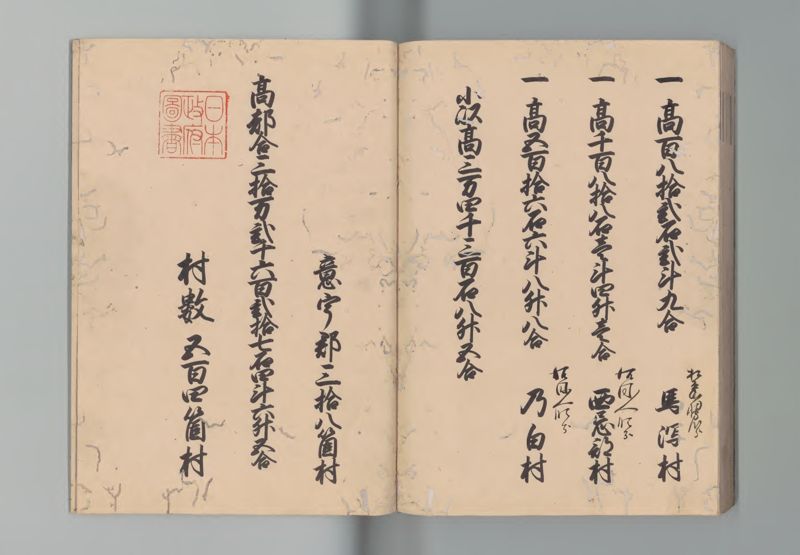 一 高百八拾弐石弐斗九合
馬潟村
一 高千百八拾八石壱斗四升壱合
西忌部村
一 高五百拾六石六斗八升八合
乃白村
小以高三万四千三百石八升五合
意宇郡三拾八箇村
高都合三拾万弐千六百弐拾七石四斗六升五合
村数 五百四箇村
日本
政府
図書